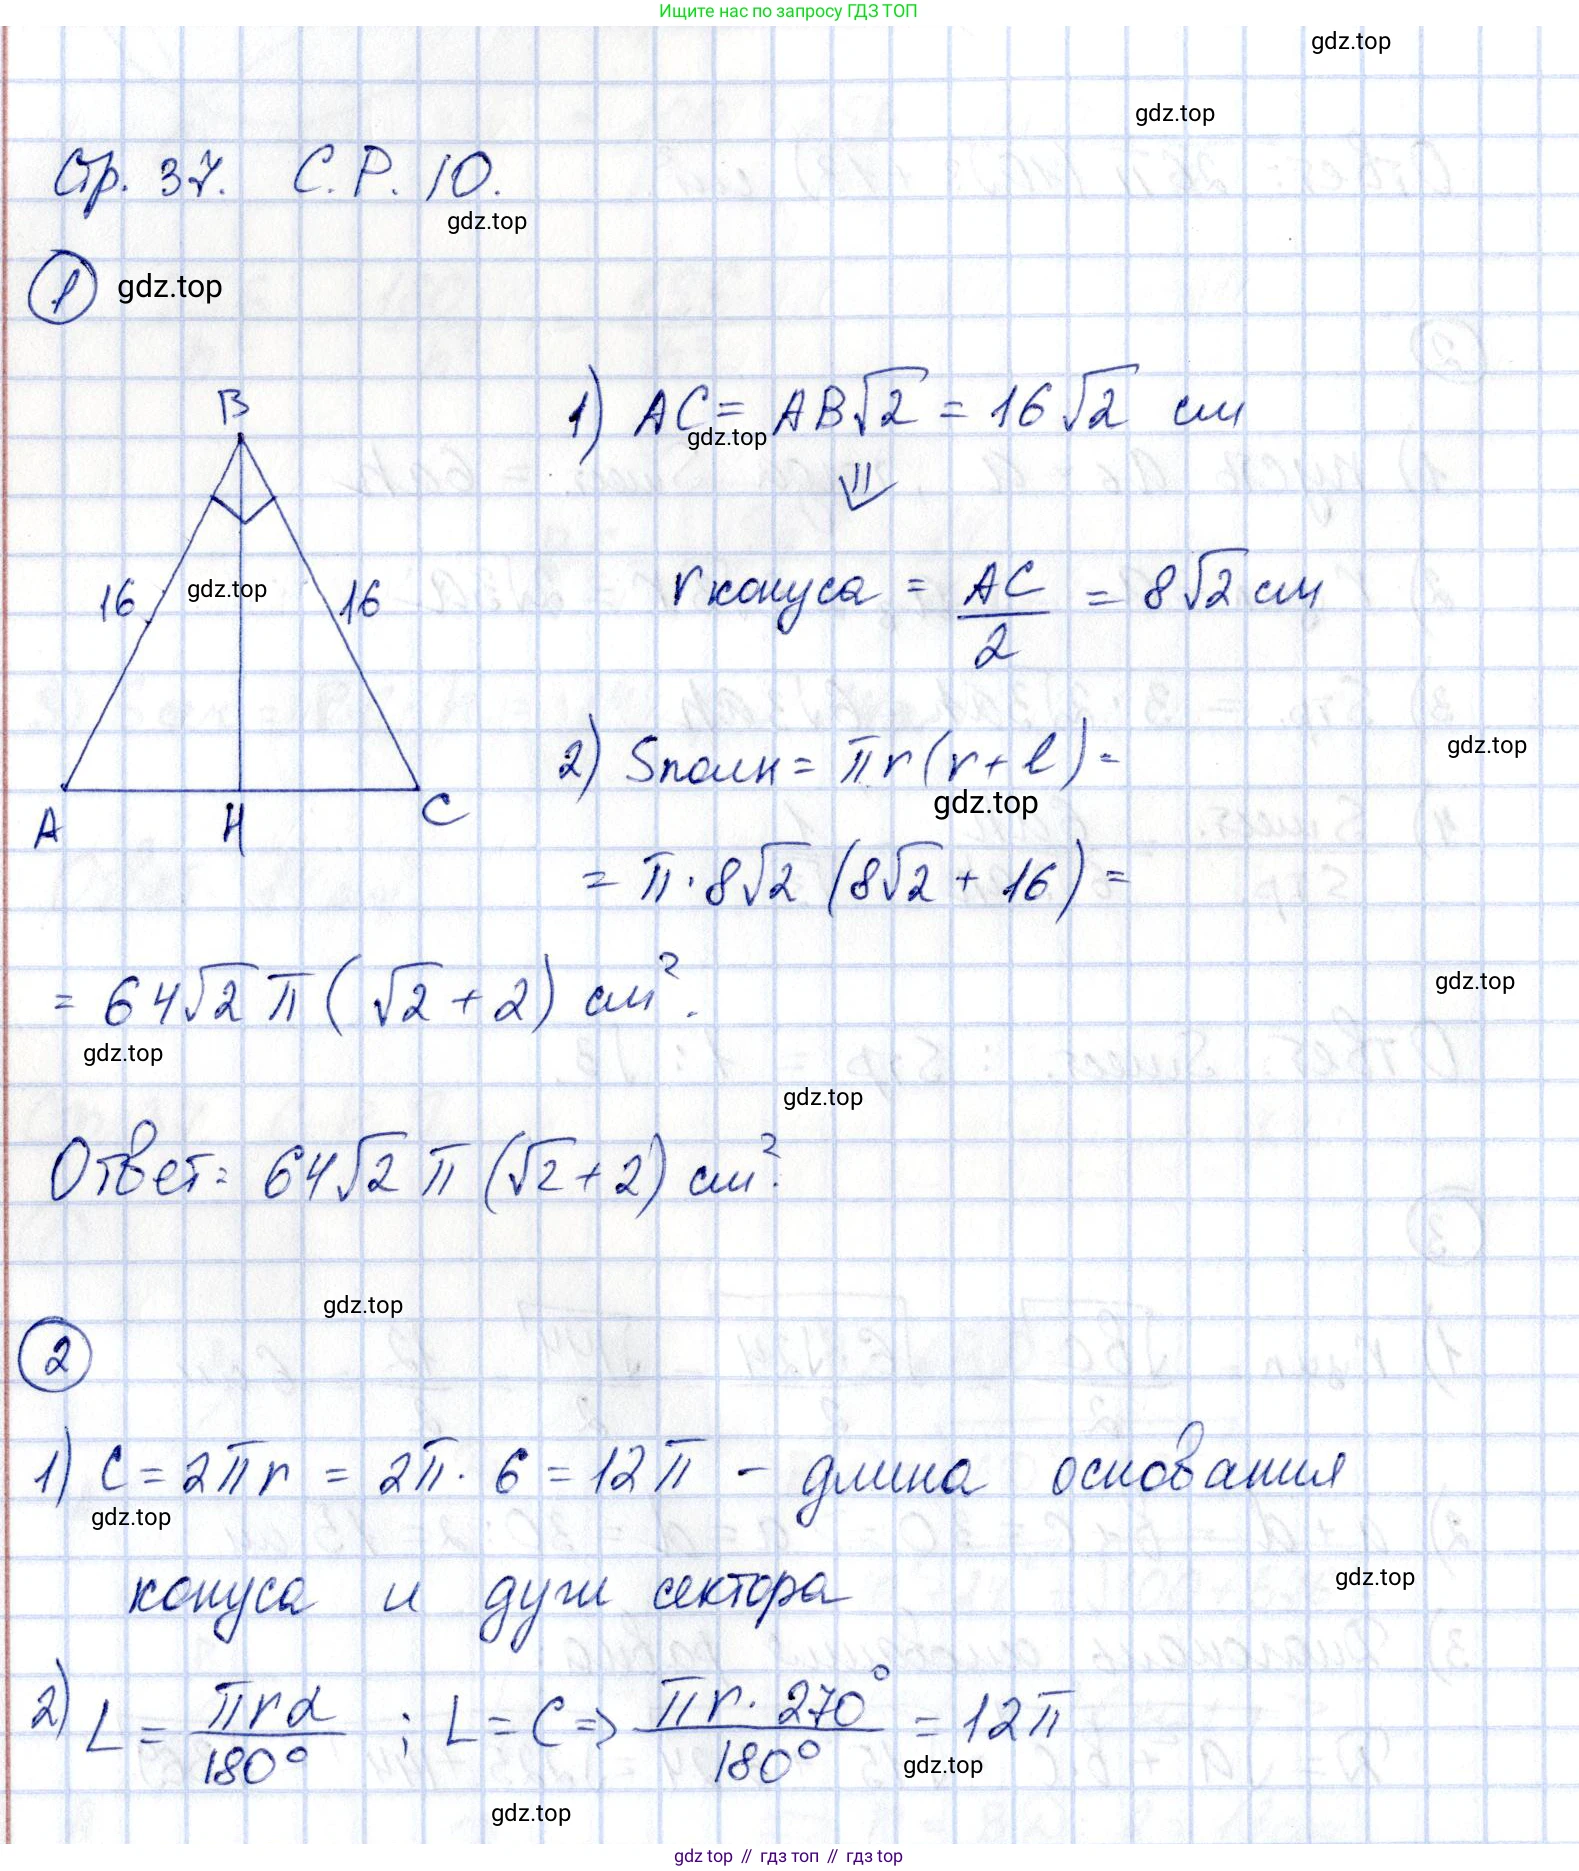 Ищите нас по запросу ГДЗ ТОП
gdz.top
gdz.top
Стр. 37. С.Р. 10.
gdz.top
1 gdz.top
B
1) AC = AB√2 = 16√2 см
gdz.top
⇓
16 gdz.top 16
r конуса = AC/2 = 8√2 см
2) Sполн = πr(r+l) =
gdz.top
gdz.top
A H C
= π·8√2 (8√2 + 16) =
= 64√2 π (√2 + 2) см².
gdz.top
gdz.top
gdz.top
Ответ: 64√2 π (√2 + 2) см².
gdz.top
2
1) C = 2πr = 2π·6 = 12π – длина основания
gdz.top
конуса и дуги сектора
gdz.top
2) L = πrα/180° ; L = C ⇒ πr·270°/180° = 12π
gdz.top
gdz.top
gdz top // гдз топ // гдз top